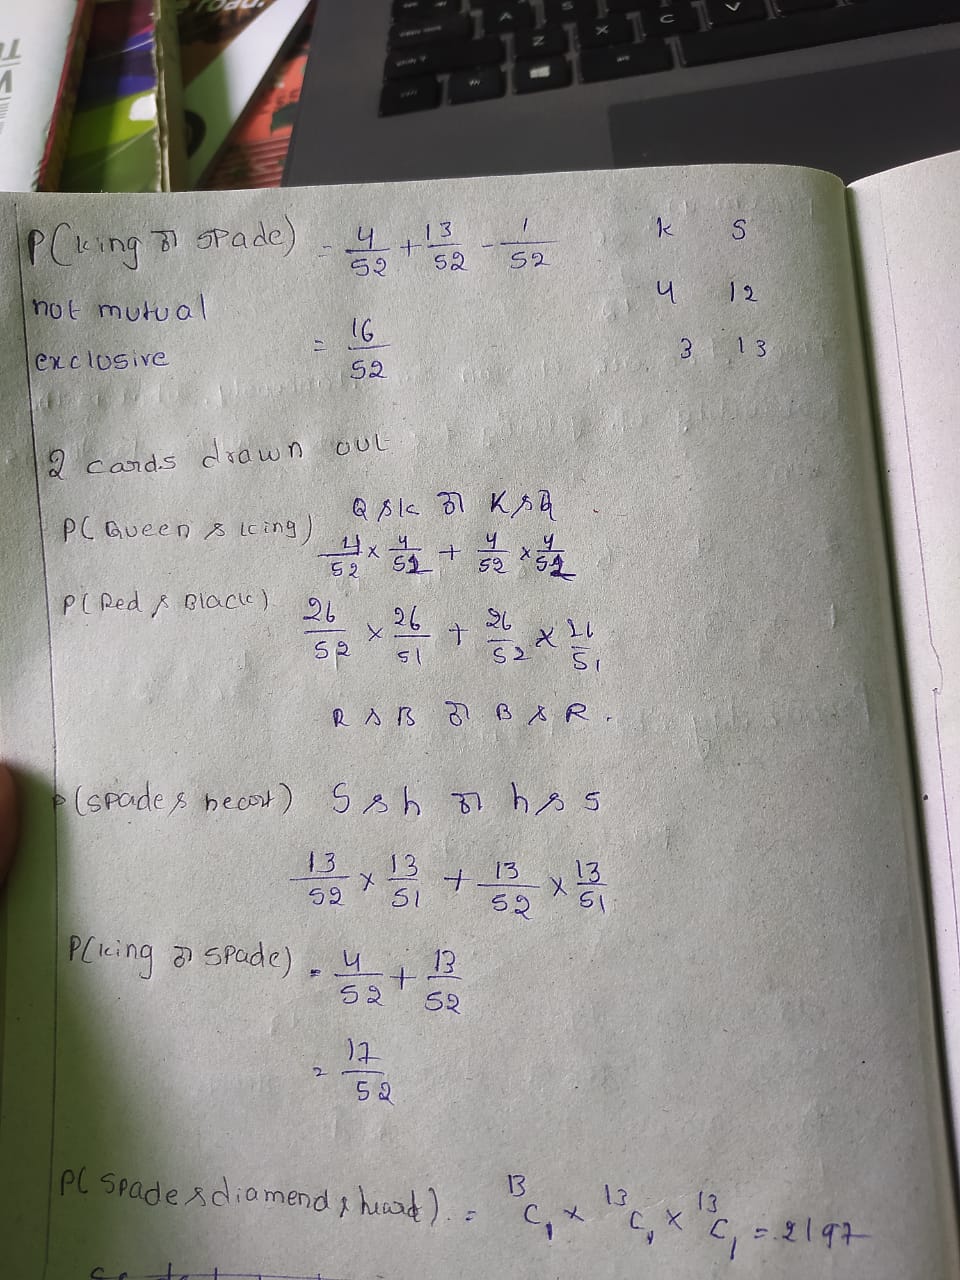 P(King वा spade) = 4/52 + 13/52 - 1/52 K S
not mutual 4 12
exclosive = 16/52 3 13
2 cards drawn out
P(Queen & King) Q & K वा K & Q
4/52 × 4/51 + 4/52 × 4/51
P(Red & Black) 26/52 × 26/51 + 26/52 × 26/51
R & B वा B & R.
P(spade & heart) S & h वा h & s
13/52 × 13/51 + 13/52 × 13/51
P(King वा spade) = 4/52 + 13/52
= 17/52
P(spade & diamend & heart) = 13C1 × 13C1 × 13C1 = 2197